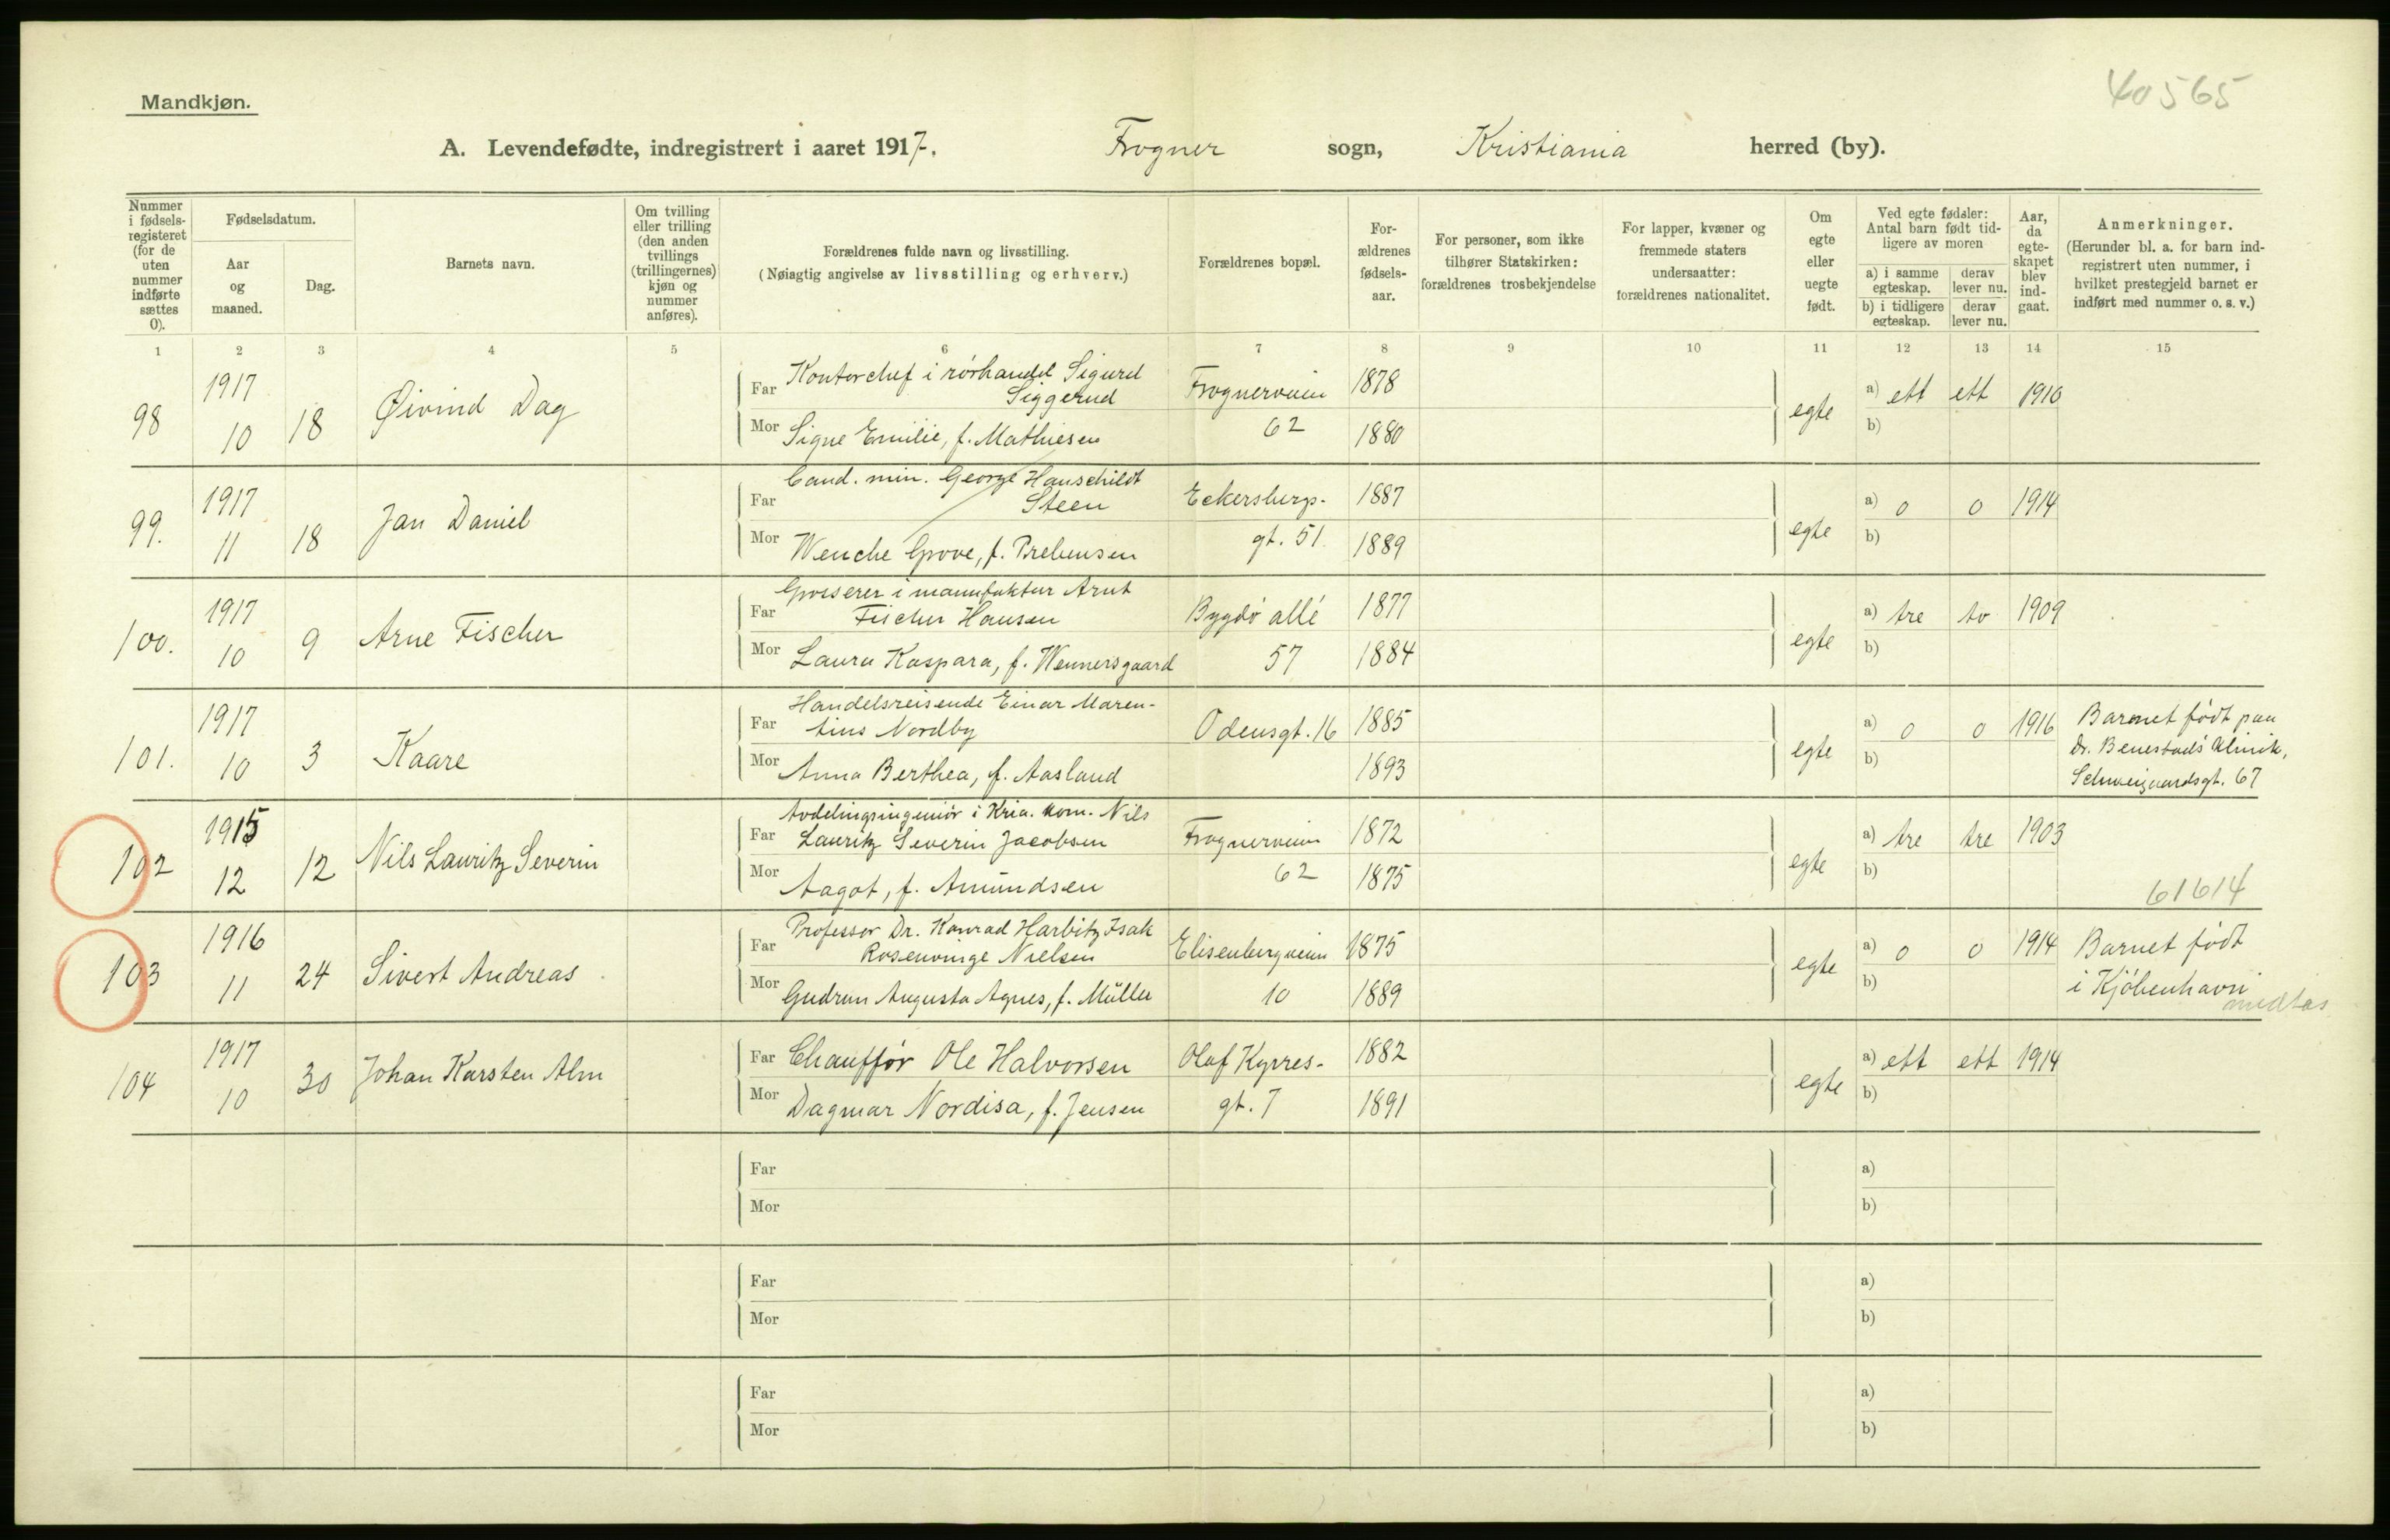 Mandkjøn.
40565
A. Levendefødte, indregistrert i aaret 1917. Frogner sogn, Kristiania herred (by).
Nummer i fødsels-registeret (for de uten nummer indførte sættes 0).
Fødselsdatum.
Aar og maaned.
Dag.
Barnets navn.
Om tvilling eller trilling (den anden tvillings (trillingernes) kjøn og nummer anføres).
Forældrenes fulde navn og livsstilling.
(Nøiagtig angivelse av livsstilling og erhverv.)
Forældrenes bopæl.
For-ældrenes fødsels-aar.
For personer, som ikke tilhører Statskirken: forældrenes trosbekjendelse
For lapper, kvæner og fremmede staters undersaatter: forældrenes nationalitet.
Om egte eller uegte født.
Ved egte fødsler: Antal barn født tid-ligere av moren
a) i samme egteskap.
derav lever nu.
b) i tidligere egteskap.
derav lever nu.
Aar, da egte-skapet blev ind-gaat.
Anmerkninger.
(Herunder bl. a. for barn ind-registrert uten nummer, i hvilket prestegjeld barnet er indført med nummer o. s. v.)
1 2 3 4 5 6 7 8 9 10 11 12 13 14 15
98 1917 10 18 Øivind Dag
Far Kontorchef i rørhandel Sigurd Siggerud Frognerveien 1878
Mor Signe Emilie, f. Mathiesen 62 1880
egte a) ett ett 1910
b)
99. 1917 11 18 Jan Daniel
Far Cand. min. George Hauschildt Steen Eckersbergs- 1887
Mor Wenche Grove, f. Prebensen gt. 51. 1889
egte a) 0 0 1914
b)
100. 1917 10 9 Arne Fischer
Far Grosserer i manufaktur Arnt Fischer Hansen Bygdø allé 1877
Mor Laura Kaspara, f. Wennersgaard 57 1884
egte a) tre to 1909
b)
101. 1917 10 3 Kaare
Far Handelsreisende Einar Maren-
tius Nordby Odensgt. 16 1885
Mor Anna Berthea, f. Aasland 1893
egte a) 0 0 1916
b)
Barnet født paa
Dr. Benestads klinik,
Schweigaardsgt. 67
102 1915 12 12 Nils Lauritz Severin
Far Avdelingsingeniør i Kria. kom. Nils
Lauritz Severin Jacobsen Frognerveien 1872
Mor Aagot, f. Amundsen 62 1875
egte a) tre tre 1903
b)
61614
103 1916 11 24 Sivert Andreas
Far Professor Dr. Konrad Harbitz Isak
Rosenvinge Nielsen Elisenbergveien 1875
Mor Gudrun Augusta Agnes, f. Müller 10 1889
egte a) 0 0 1914
b)
Barnet født
i Kjøbenhavn
medtas
104 1917 10 30 Johan Karsten Alm
Far Chauffør Ole Halvorsen Olaf Kyrres- 1882
Mor Dagmar Nordisa, f. Jensen gt. 7 1891
egte a) ett ett 1914
b)
Far a)
Mor b)
Far a)
Mor b)
Far a)
Mor b)